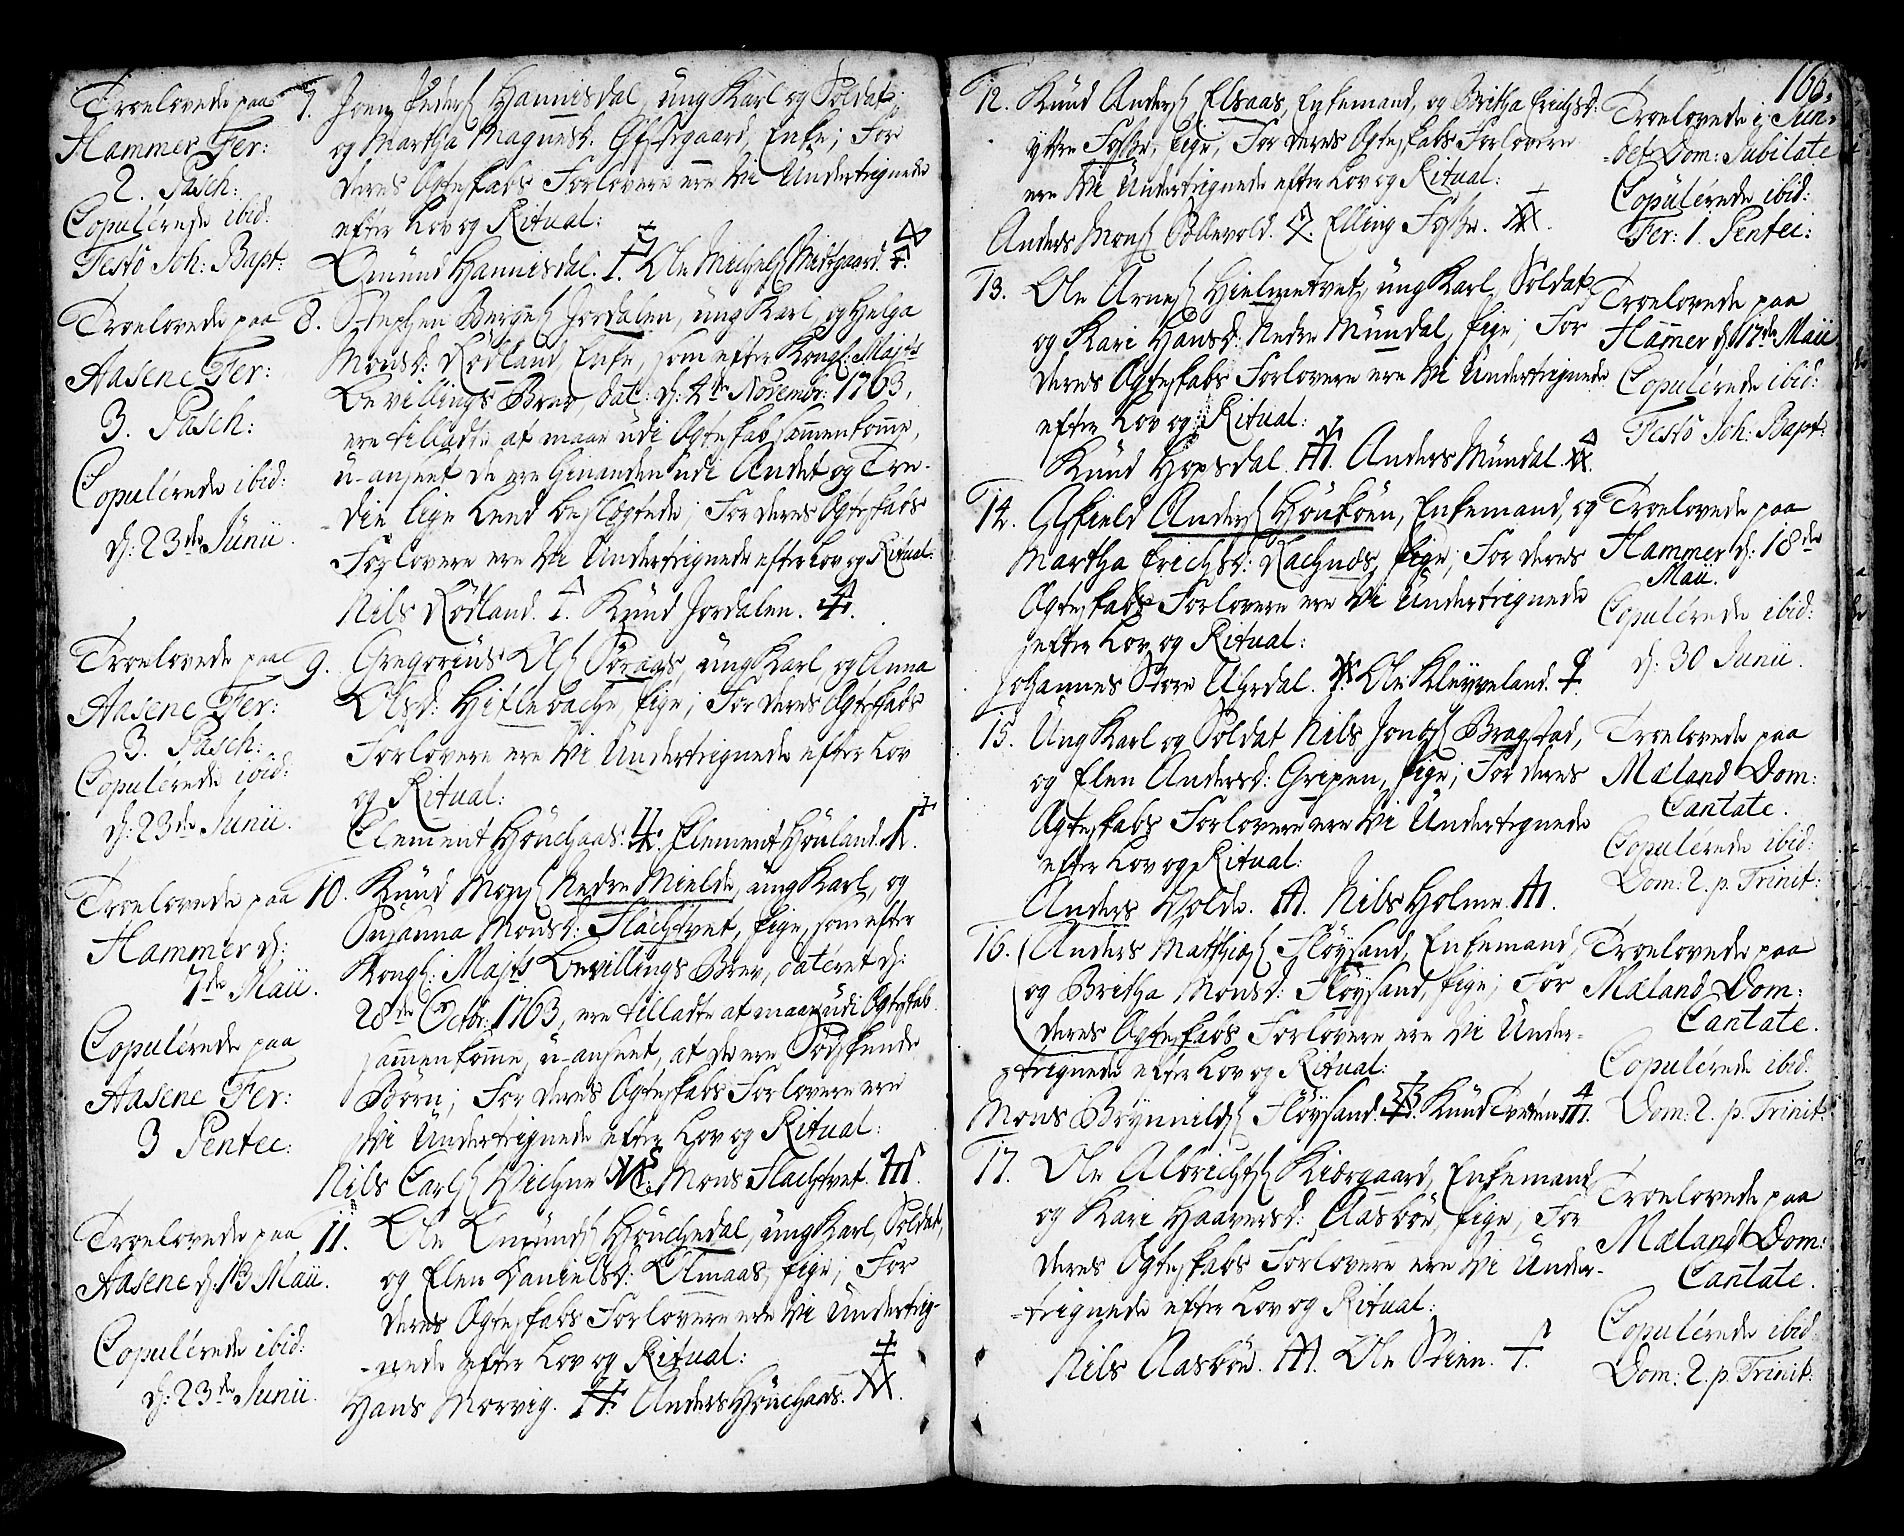 Troelovede paa
Hammer Fer:
2. Pasch:
Copulérede ibid:
Festo Joh: Bapt:
7. Joen Peders Hannisdal, ung Karl og Soldat,
og Martha Magnesd: Enke; For
deres Ægteskabs Forlovere ere Vi Undertegnede
efter Lov og Ritual:
Omund Hannisdal. Ole Michels Midtgaard.
Troelovede paa
Aasene Fer:
3. Pasch:
Copulérede ibid:
d: 23de Junii.
8. Stephen Berges Jordalen, ung Karl, og Helga
Monsd: Rödland, Enke, som efter Kongl: Majts
Bevillings Brev, dat: d: 4de Novembr: 1763,
ere tilladte at maae udi Ægteskab sammenkomme,
u-anseet de ere hinanden udi Andet og Tre-
die lige Leed beslögtede; For deres Ægteskabs
Forlovere ere Vi Undertegnede efter Lov og Ritual:
Nils Rödland. Knud Jordalen.
Troelovede paa
Aasene Fer:
3. Pasch:
Copulérede ibid:
d: 23de Junii.
9. Gregorius Ols Söraas, ung Karl, og Anna
Olsd: Hislebache, Pige; For deres Ægteskabs
Forlovere ere Vi Undertegnede efter Lov
og Ritual:
Clement Höuchaas. Clement Höuland.
Troelovede paa
Hammer d:
7de Maii.
Copulérede paa
Aasene Fer:
3 Pentec:
10. Knud Mons Nedre Mielde, ung Karl, og
Susanna Monsd: Flachtvet, Pige, som efter
Kongl: Majts Bevillings Brev, dateret d:
28de Octbr: 1763, ere tilladte at maae udi Ægteskab
sammenkomme, u-anseet, at de ere Södskende
Börn; For deres Ægteskabs Forlovere ere
Vi Undertegnede efter Lov og Ritual:
Nils Carls Vichne Mons Flachtvet.
Troelovede paa
Aasene d: 13 Maii.
Copulérede ibid:
d: 23de Junii.
11. Ole Omunds Höuchedal, ung Karl, Soldat,
og Elen Danielsd: Olmaas, Pige; For
deres Ægteskabs Forlovere ere Vi Underteg-
nede efter Lov og Ritual:
Hans Morvig. Anders Höuchaas.
166.
12. Knud Anders Elsaas, Enkemand, og Britha Erichsd:
yttre Fosse, Pige, For deres Ægteskabs Forlovere
ere Vi Undertegnede efter Lov og Ritual:
Anders Mons Söllevold. Elling Fosse.
Troelovede i Hun-
det Dom: Jubilate
Copulérede ibid:
Fer: 1. Pentec:
13. Ole Arnes Hielmetvet, ung Karl, Soldat
og Kari Hansd: Nedre Mundal, Pige; For
deres Ægteskabs Forlovere ere Vi Undertegnede
efter Lov og Ritual:
Knud Hopsdal. Anders Mundal.
Troelovede paa
Hamer d: 17de Maii
Copulérede ibid:
Festo Joh: Bapt:
14. Anders Höuköen, Enkemand, og
Martha Erichsd: Rachnæs, Pige; For deres
Ægteskabs Forlovere ere Vi Undertegnede
efter Lov og Ritual:
Johannes Store Uhrdal. Ole Kleyveland.
Troelovede paa
Hammer d: 18de
Maii.
Copulérede ibid:
d: 30 Junii.
15. Ung Karl og Soldat Nils Bragstad,
og Elen Andersd: Gripen, Pige; For deres
Ægteskabs Forlovere ere Vi Undertegnede
efter Lov og Ritual:
Anders Nils Holme.
Troelovede paa
Mæland Dom:
Cantate.
Copulérede ibid:
Dom: 2. p. Trinit:
16. Anders Matthias Flöysand, Enkemand,
og Britha Monsd: Flöysand, Pige; For
deres Ægteskabs Forlovere ere Vi Under-
tegnede efter Lov og Ritual:
Mons Brynnilds Flöysand. Knud Tveten.
Troelovede paa
Mæland Dom:
Cantate.
Copulérede ibid:
Dom: 2. p. Trinit:
17. Ole Albrichts Kiörgaard, Enkemand
og Kari Haaversd: Aasböe, Pige; For
deres Ægteskabs Forlovere ere Vi Under-
tegnede efter Lov og Ritual:
Nils Aasböe. Ole Stien.
Troelovede paa
Mæland Dom:
Cantate.
Copulérede ibid
Dom: 2. p. Trinit: